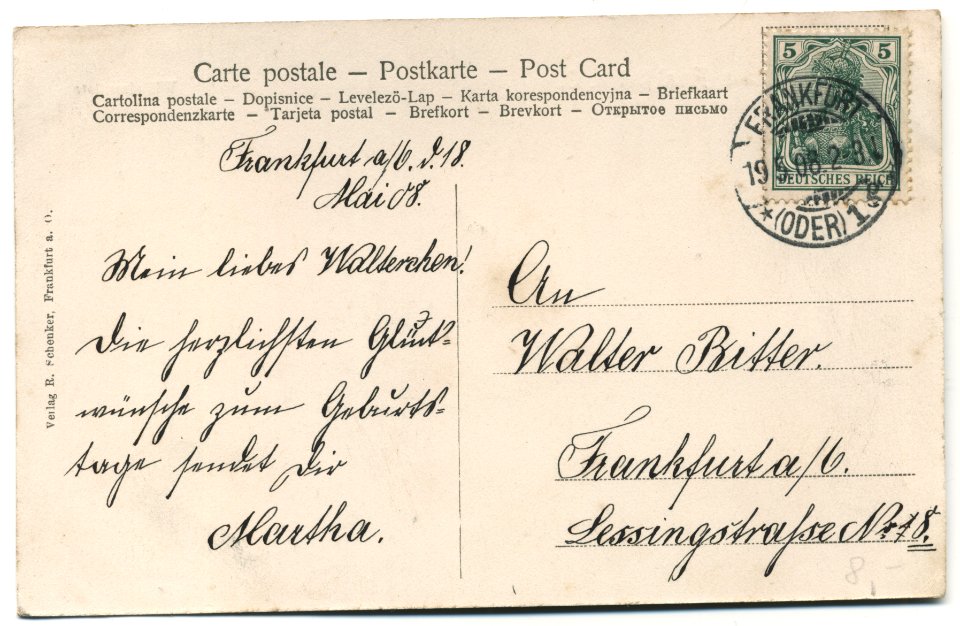 Carte postale – Postkarte – Post Card
Cartolina postale – Dopisnice – Levelezö-Lap – Karta korespondencyjna – Briefkaart
Correspondenzkarte – Tarjeta postal – Brefkort – Brevkort – Открытое письмо
5 5
DEUTSCHES REICH
FRANKFURT
19.5.08.2-3N
* (ODER) 1
Frankfurt a/O. d. 18.
Mai 08.
Mein liebes Walterchen!
Die herzlichsten Glück-
wünsche zum Geburts-
tage sendet Dir
Martha.
An
Walter Ritter.
Frankfurt a/O.
Lessingstraße No 18.
8,-
Verlag R. Schenker, Frankfurt a. O.